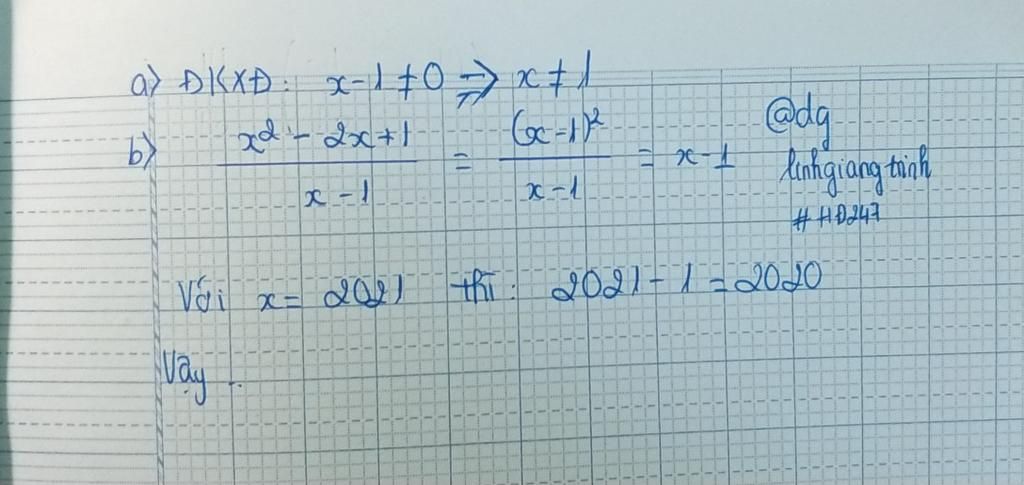 a) ĐKXĐ: x-1≠0 => x≠1
b) x² - 2x+1 / x-1 = (x-1)² / x-1 = x-1
@dg
linhgiangtrinh
#HD247
Với x = 2021 thì: 2021-1=2020
Vậy ..